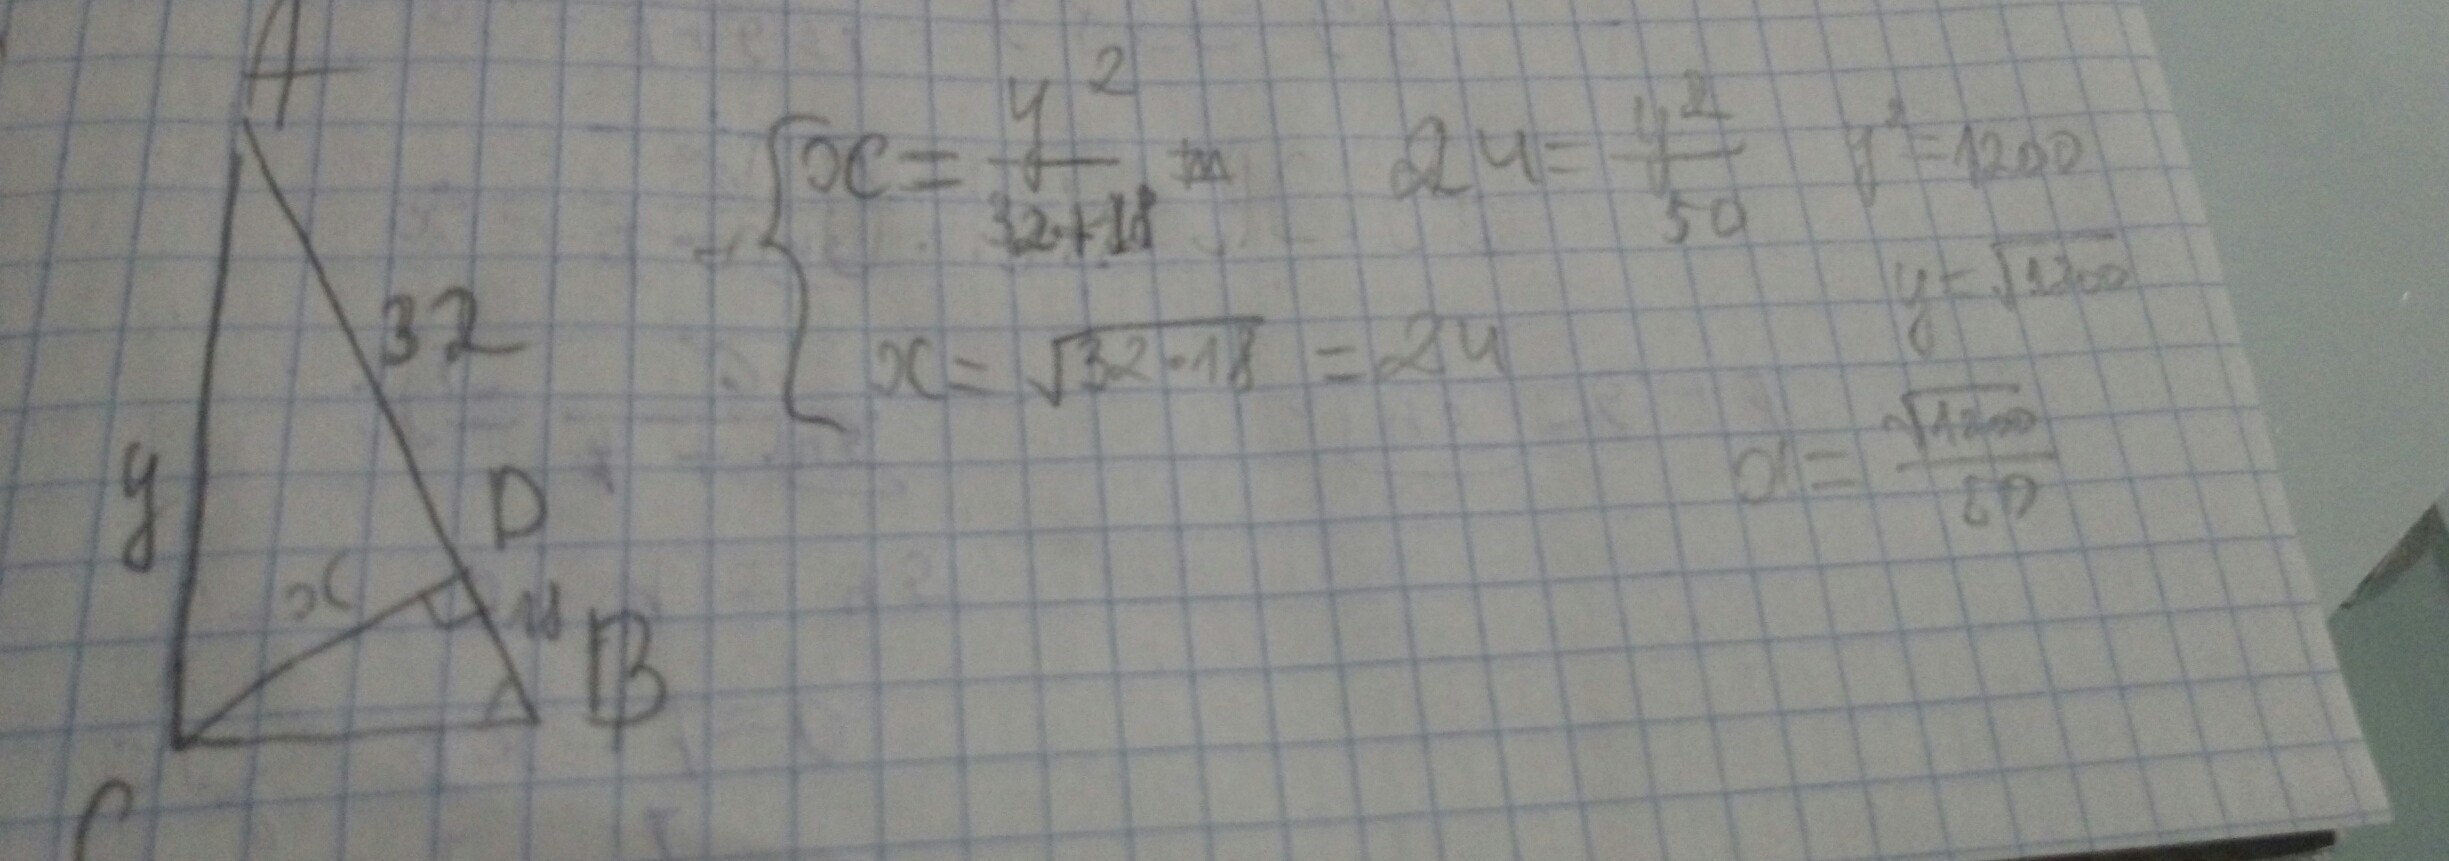 A
32
y
D
x
18
B
C
x = y² / (32+18)
x = √(32·18) = 24
24 = y² / 50
y² = 1200
y = √1200
= √1200 / 50